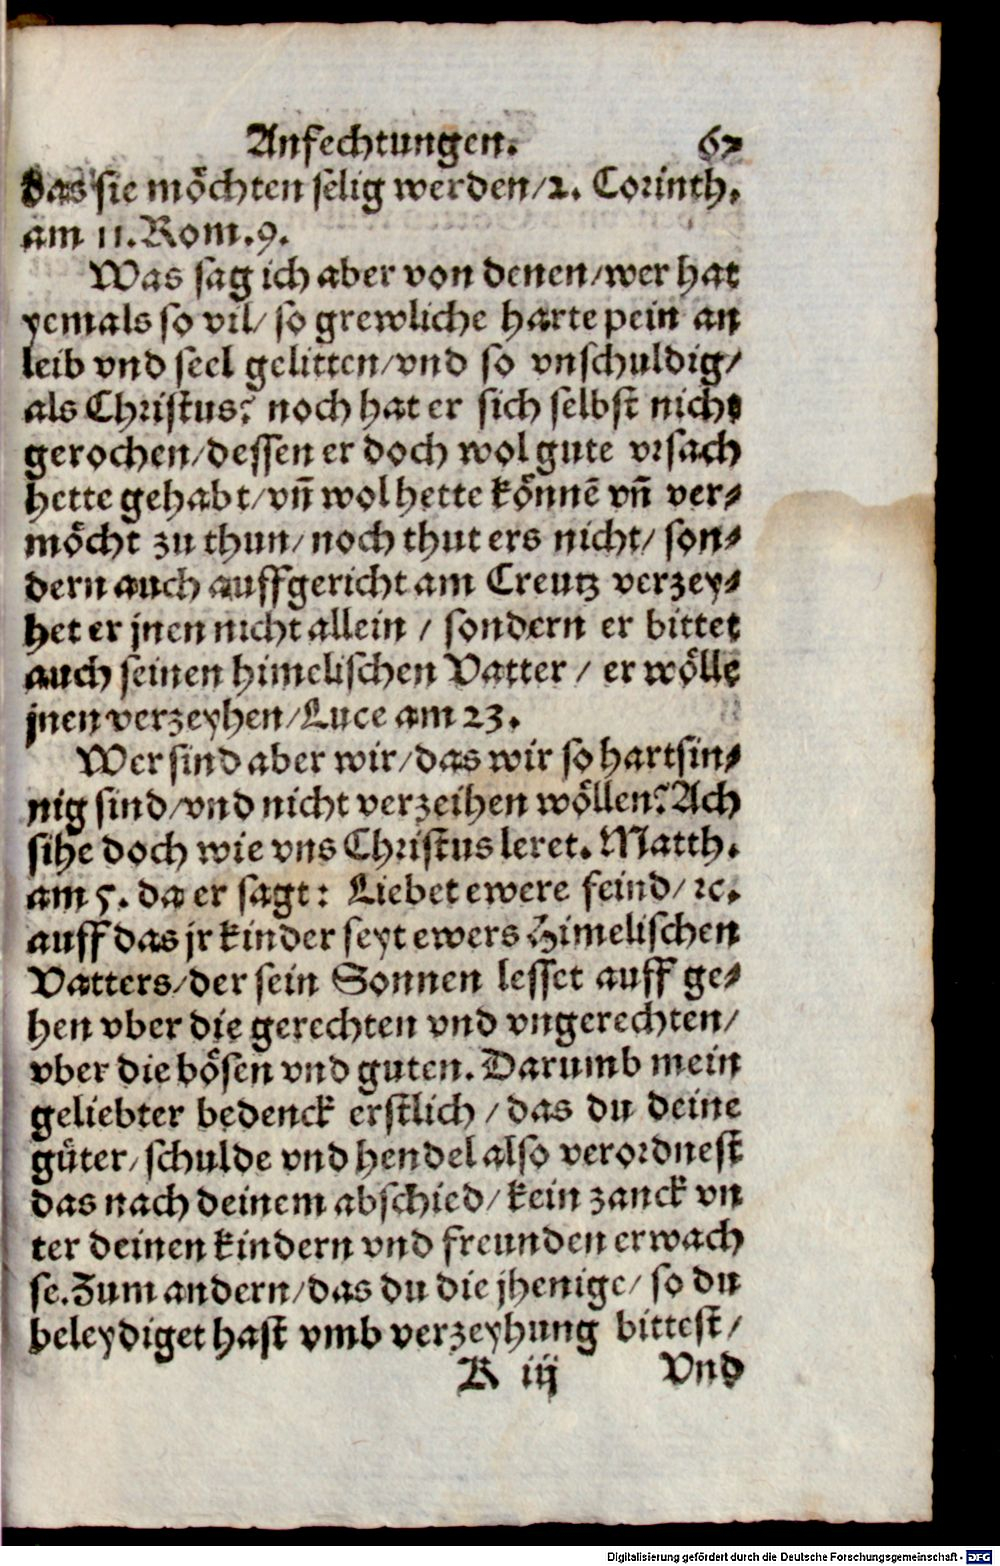 Anfechtungen. 67
das sie möchten selig werden/2. Corinth.
am 11. Rom. 9.
Was sag ich aber von denen/wer hat
yemals so vil/ so grewliche harte pein an
leib vnd seel gelitten/vnd so vnschuldig/
als Christus? noch hat er sich selbst nicht
gerochen/dessen er doch wol gute vrsach
hette gehabt/vñ wol hette könnē vñ ver-
möcht zu thun/noch thut ers nicht/ son-
dern auch auffgericht am Creutz verzey-
het er jnen nicht allein / sondern er bittet
auch seinen himelischen Vatter / er wölle
jnen verzeyhen/Luce am 23.
Wer sind aber wir/das wir so hartsin-
nig sind/vnd nicht verzeihen wöllen? Ach
sihe doch wie vns Christus leret. Matth.
am 5. da er sagt: Liebet ewere feind/ ꝛc.
auff das jr kinder seyt ewers Himelischen
Vatters/der sein Sonnen lesset auff ge-
hen vber die gerechten vnd vngerechten/
vber die bösen vnd guten. Darumb mein
geliebter bedenck erstlich / das du deine
güter/ schulde vnd hendel also verordnest
das nach deinem abschied/ kein zanck vn
ter deinen kindern vnd freunden erwach
se. Zum andern/das du die jhenige/ so du
beleydiget hast vmb verzeyhung bittest/
K iij Vnd
Digitalisierung gefördert durch die Deutsche Forschungsgemeinschaft - DFG